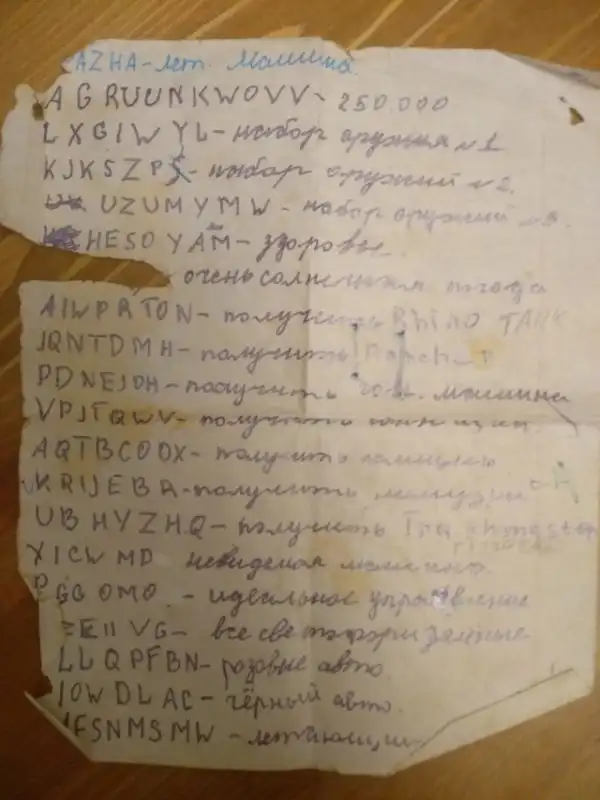 AZHA-лет. Машина
AGRUUNKWOVV- 250.000
LXGIWYL- набор оружия №1
KJKSZPS- набор оружий №2.
UZUMYMW - набор оружий №3.
HESOYAM- здоровье
очень солнечная погода
AIWPRTON- получить Rhino TANK
JQNTDMH- получить Ranch
PDNEJOH- получить гон. машина
VPJTQWV- получить
AQTBCODX- получить
KRIJEBR- получить
UBHYZHQ- получить
XICWMD невидемая машина
PGGOMO - идеальное управление
EIIVG- все светофоры зелёные
LLQPFBN- розовые авто
IOWDLAC- чёрный авто.
IFSNMSMW - летающи